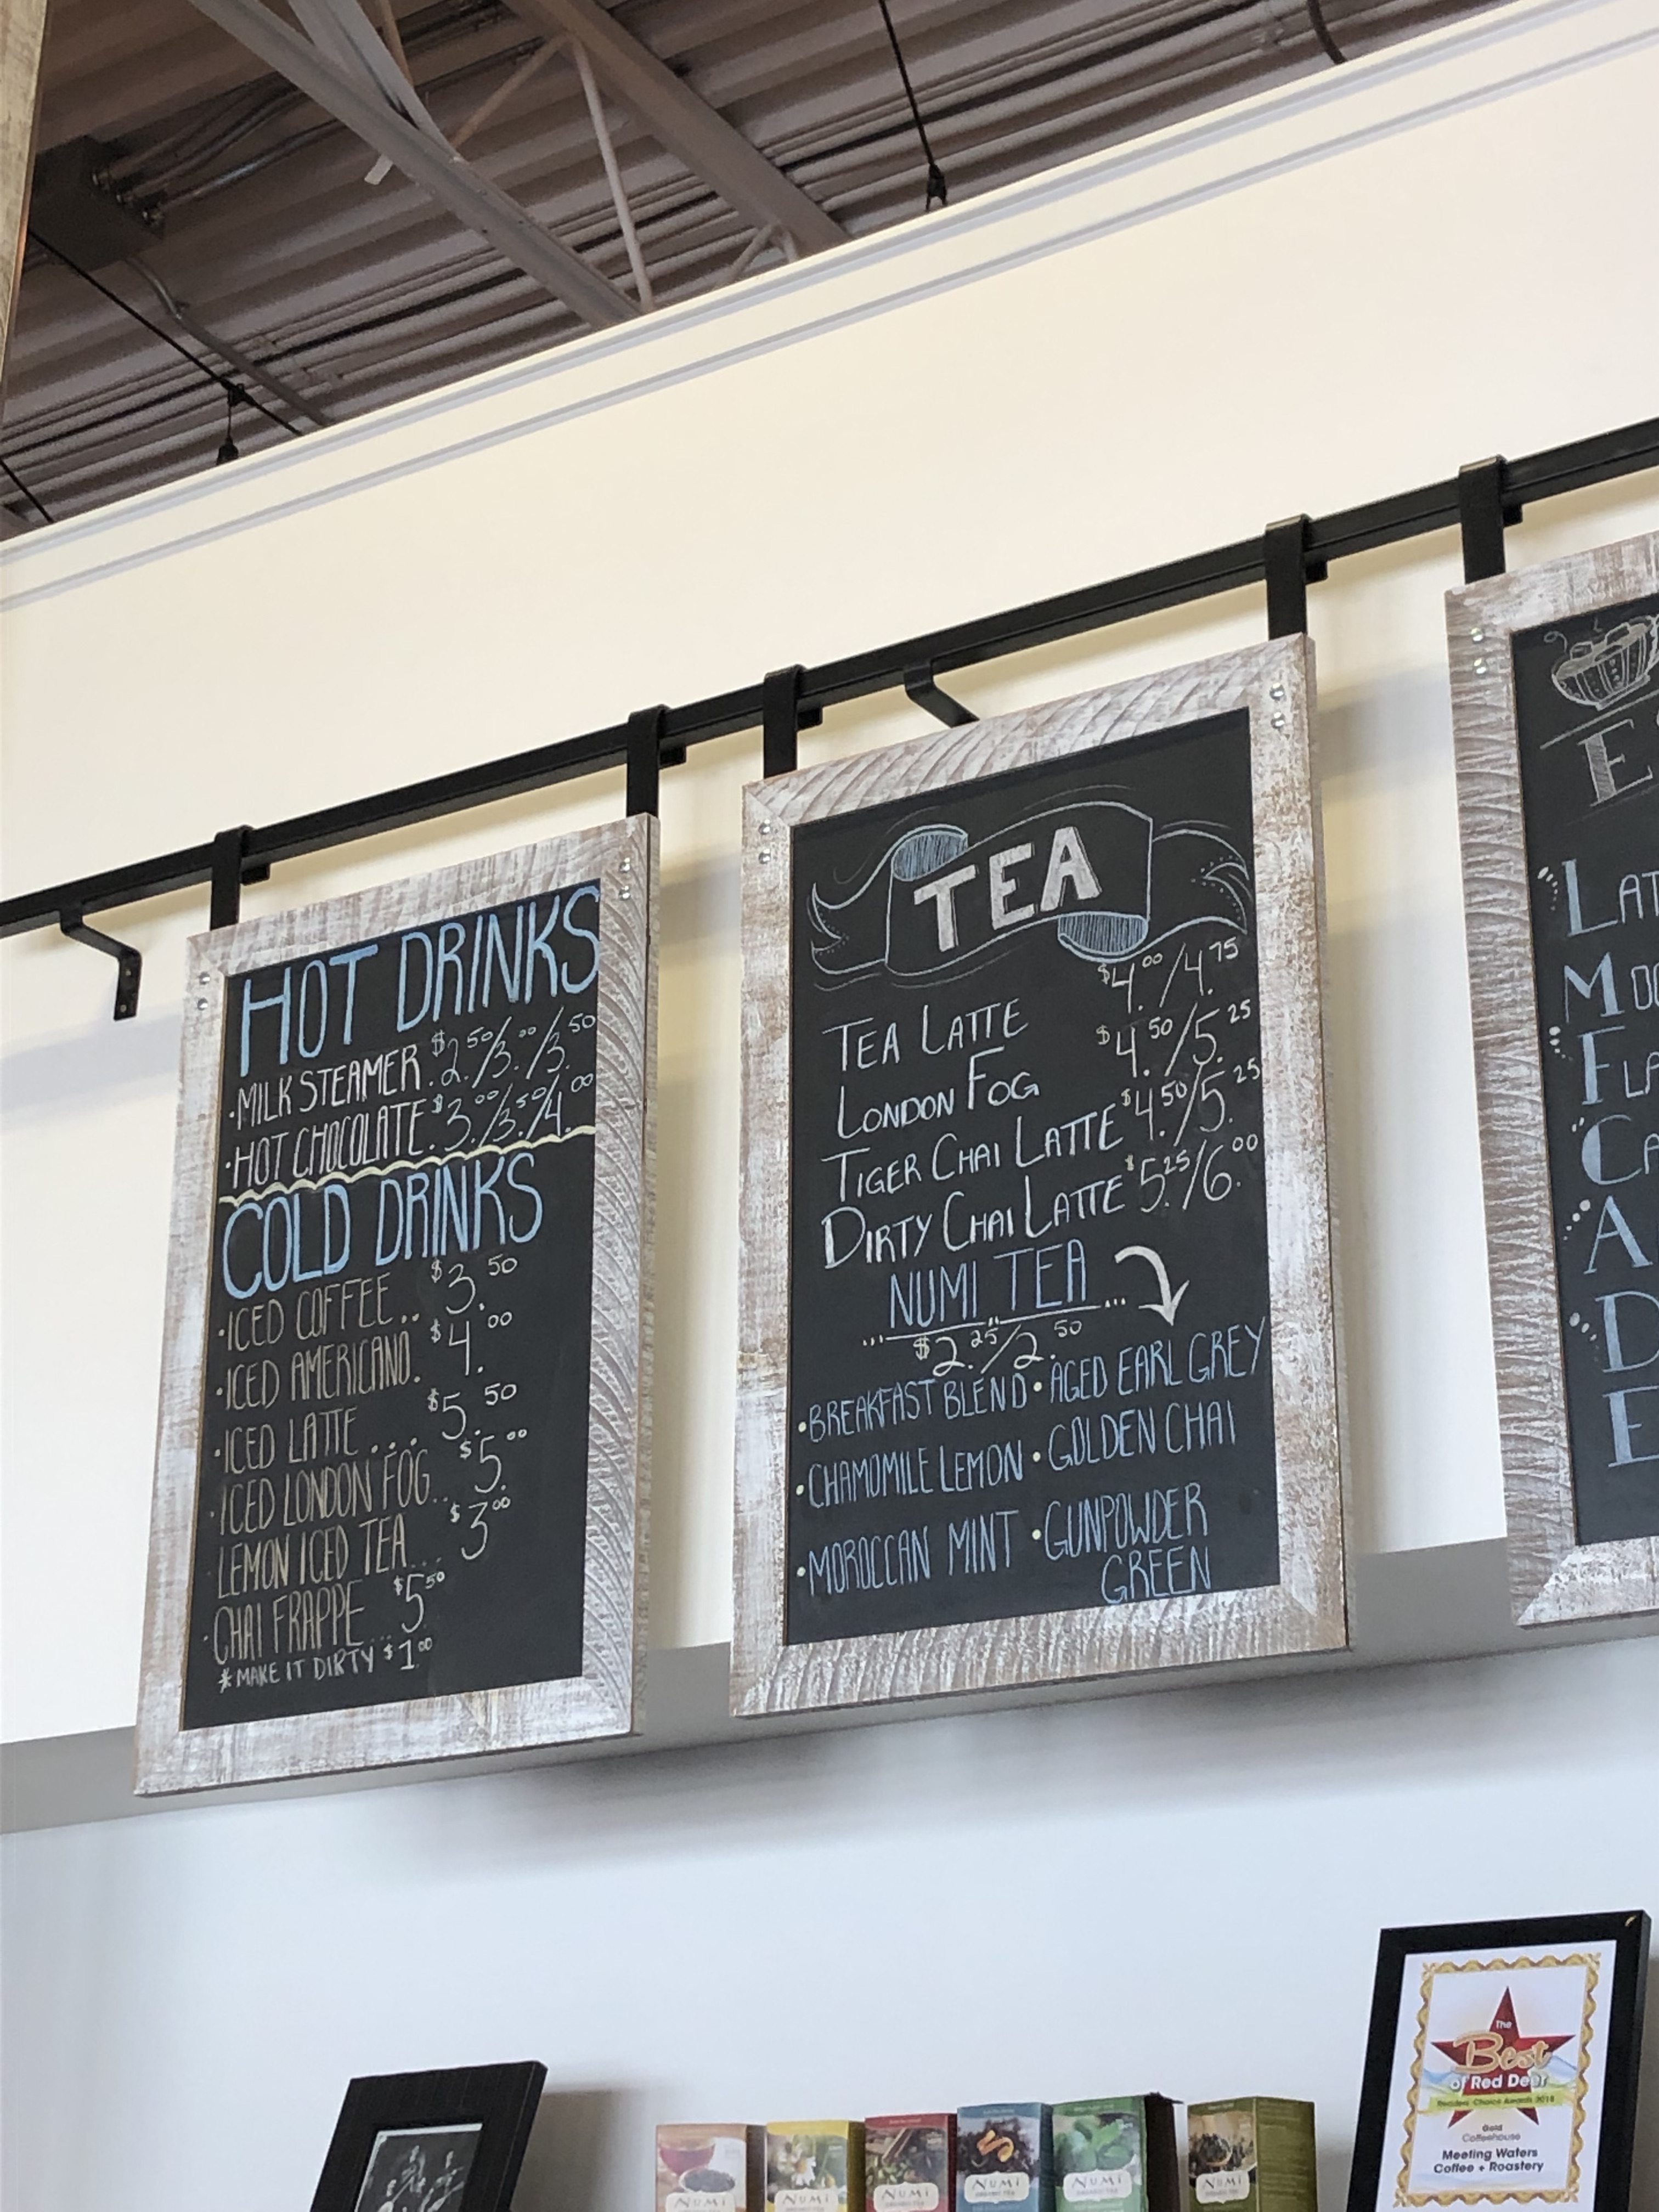 HOT DRINKS
·MILK STEAMER. $2.50/3.00/3.50
·HOT CHOCOLATE. $3.00/3.50/4.00
COLD DRINKS
·ICED COFFEE.. $3.50
·ICED AMERICANO. $4.00
·ICED LATTE .... $5.50
·ICED LONDON FOG.. $5.00
·LEMON ICED TEA... $3.00
·CHAI FRAPPE ... $5.50
*MAKE IT DIRTY $1.00
TEA
TEA LATTE $4.00/4.75
LONDON FOG $4.50/5.25
TIGER CHAI LATTE $4.50/5.25
DIRTY CHAI LATTE $5.25/6.00
NUMI TEA
$2.25/2.50
·BREAKFAST BLEND ·AGED EARL GREY
·CHAMOMILE LEMON ·GOLDEN CHAI
·MOROCCAN MINT ·GUNPOWDER
GREEN
E
LAT
MOC
FLA
CA
A
D
E
NUMI
NUMI
NUMI
NUMI
NUMI
NUMI
The
Best
of Red Deer
Readers' Choice Awards 2018
Gold
Coffeehouse
Meeting Waters
Coffee + Roastery